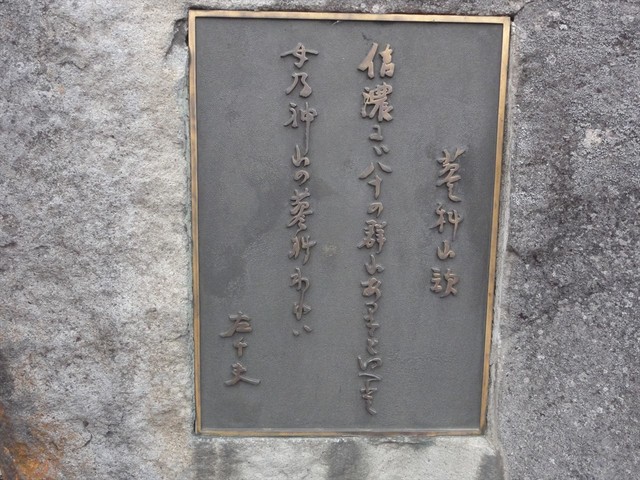 蓼科山歌
信濃には八十の群山ありといへど
女乃神山の蓼科われは
左千夫